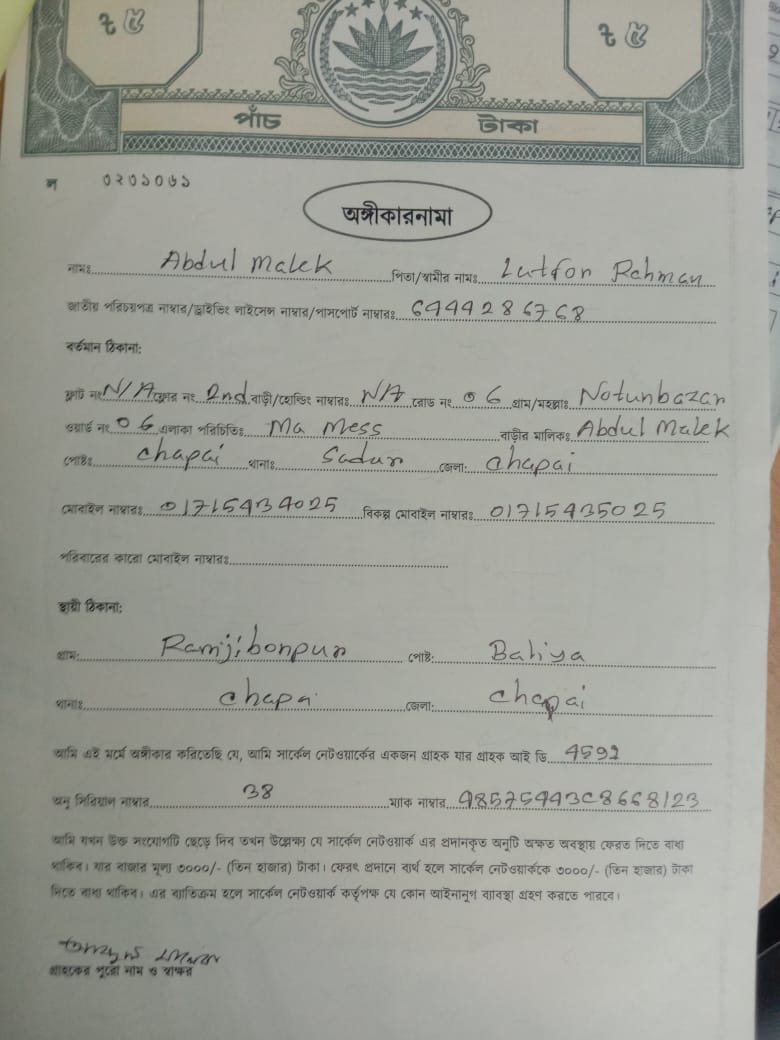 ৳ ৫ ৳ ৫
পাঁচ টাকা
ল ০২০১০৬১
অঙ্গীকারনামা
নামঃ Abdul Malek পিতা/স্বামীর নামঃ Lutfor Rahman
জাতীয় পরিচয়পত্র নাম্বার/ড্রাইভিং লাইসেন্স নাম্বার/পাসপোর্ট নাম্বারঃ 6444286768
বর্তমান ঠিকানা:
ফ্লাট নং N/A ফ্লোর নং 2nd বাড়ী/হোল্ডিং নাম্বারঃ N/A রোড নং 06 গ্রাম/মহল্লাঃ Notunbazar
ওয়ার্ড নং 06 এলাকা পরিচিতিঃ Ma Mess বাড়ীর মালিকঃ Abdul Malek
পোষ্টঃ Chapai থানাঃ Sadur জেলা: Chapai
মোবাইল নাম্বারঃ 01715434025 বিকল্প মোবাইল নাম্বারঃ 01715435025
পরিবারের কারো মোবাইল নাম্বারঃ
স্থায়ী ঠিকানা:
গ্রাম: Ramjibonpur পোষ্ট: Baliya
থানাঃ Chapai জেলা: Chapai
আমি এই মর্মে অঙ্গীকার করিতেছি যে, আমি সার্কেল নেটওয়ার্কের একজন গ্রাহক যার গ্রাহক আই ডি 4592
অনু সিরিয়াল নাম্বার 38 ম্যাক নাম্বার 48575443C8668123
আমি যখন উক্ত সংযোগটি ছেড়ে দিব তখন উল্লেক্ষ্য যে সার্কেল নেটওয়ার্ক এর প্রদানকৃত অনুটি অক্ষত অবস্থায় ফেরত দিতে বাধ্য
থাকিব। যার বাজার মূল্য ৩০০০/- (তিন হাজার) টাকা। ফেরৎ প্রদানে ব্যর্থ হলে সার্কেল নেটওয়ার্ককে ৩০০০/- (তিন হাজার) টাকা
দিতে বাধ্য থাকিব। এর ব্যাতিক্রম হলে সার্কেল নেটওয়ার্ক কর্তৃপক্ষ যে কোন আইনানুগ ব্যাবস্থা গ্রহণ করতে পারবে।
গ্রাহকের পুরো নাম ও স্বাক্ষর